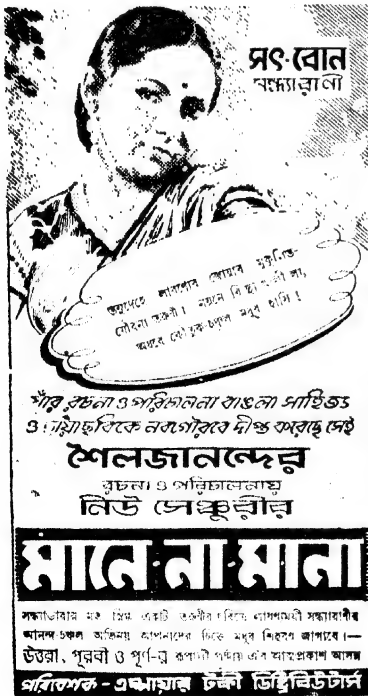 সৎ-বোন
সন্ধ্যারাণী
তনুদেহে লাবণ্যের জোয়ার
যৌবনা তরুণী। নয়নে
অধরে কৌতুক-চপল মধুর হাসি!
যাঁর রচনা ও পরিচালনা বাঙলা সাহিত্য
ও ছায়াছবিকে নবগৌরবে দীপ্ত করেছে সেই
শৈলজানন্দের
রচনা ও পরিচালনায়
নিউ সেঞ্চুরীর
মানে-না-মানা
সন্ধ্যাতারার মত স্নিগ্ধ একটি তরুণীর সন্ধ্যারাণীর
আনন্দ-চঞ্চল অভিনয় আপনাদের চিত্তে মধুর শিহরণ জাগাবে।—
উত্তরা, পূরবী ও পূর্ণ-র রূপালী পর্দায় এ'র আত্মপ্রকাশ আসন্ন
পরিবেশক - এম্পায়ার টকী ডিষ্ট্রিবিউটার্স